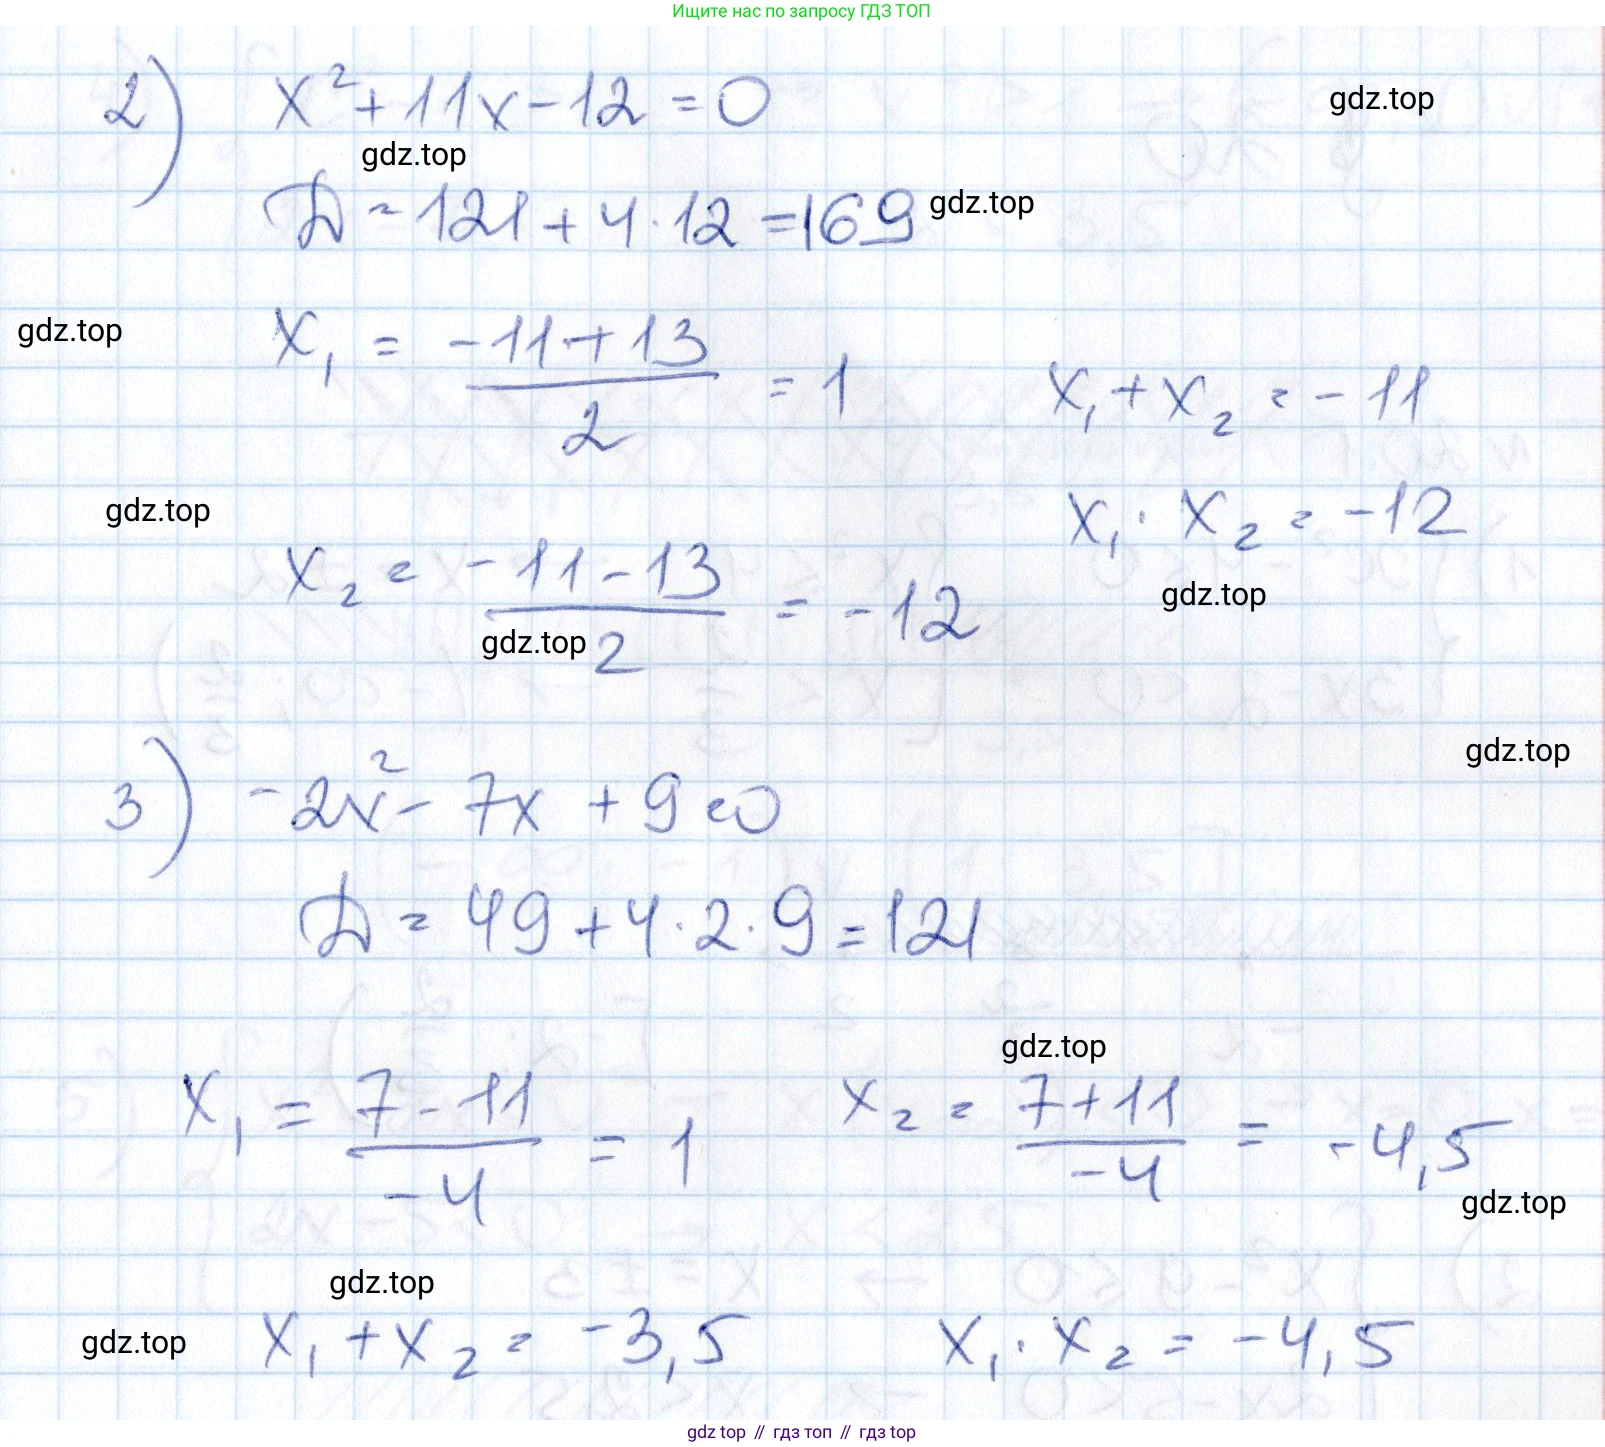 Ищите нас по запросу ГДЗ ТОП
2) x² + 11x - 12 = 0
gdz.top
gdz.top
D = 121 + 4 · 12 = 169
gdz.top
gdz.top
x₁ = (-11 + 13)/2 = 1
x₁ + x₂ = -11
gdz.top
x₁ · x₂ = -12
x₂ = (-11 - 13)/2 = -12
gdz.top
gdz.top
gdz.top
3) -2x² - 7x + 9 = 0
D = 49 + 4 · 2 · 9 = 121
gdz.top
x₁ = (7 - 11)/-4 = 1 x₂ = (7 + 11)/-4 = -4,5
gdz.top
gdz.top
gdz.top
x₁ + x₂ = -3,5 x₁ · x₂ = -4,5
gdz.top // гдз топ // гдз top